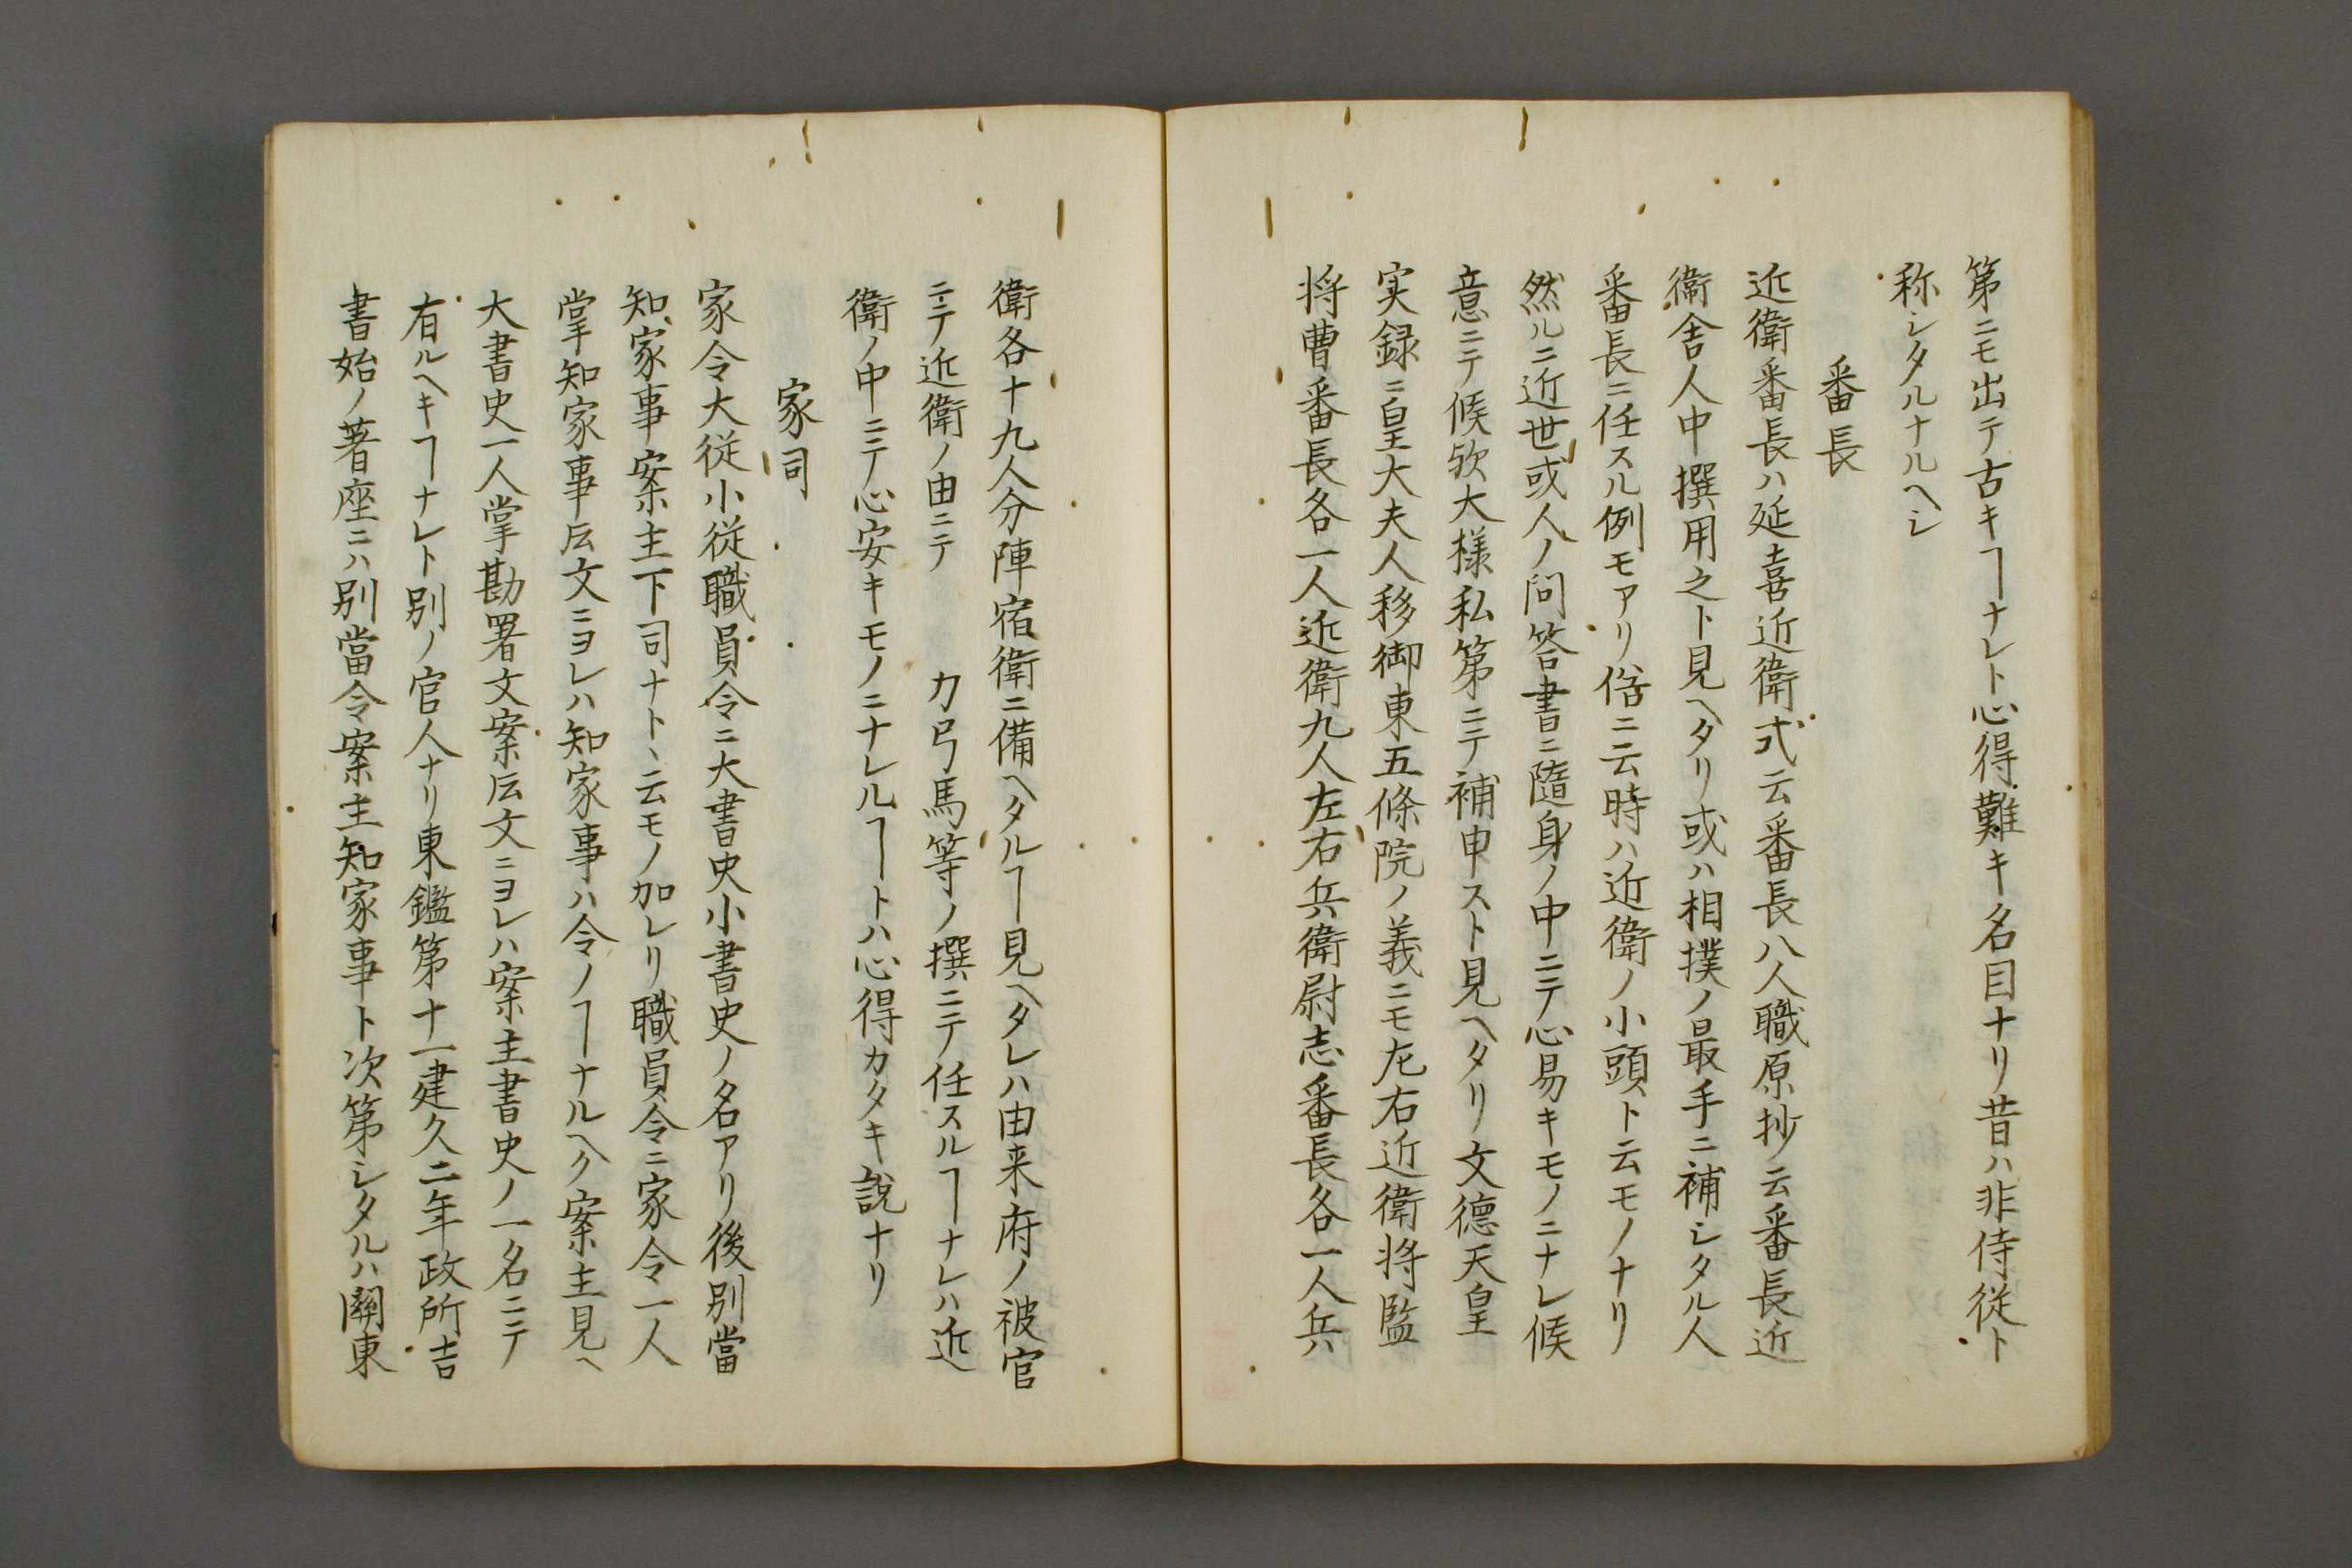 第ニモ出テ古キヿナレト心得難キ名目ナリ昔ハ非侍従ト
称シタルナルヘシ
番長
近衛番長ハ延喜近衛式云番長八人職原抄云番長近
衛舎人中撰用之ト見ヘタリ或ハ相撲ノ最手ニ補シタル人
番長ニ任スル例モアリ俗ニ云時ハ近衛ノ小頭ト云モノナリ
然ルニ近世或人ノ問答書ニ隨身ノ中ニテ心易キモノニナレ候
意ニテ候欤大様私第ニテ補申スト見ヘタリ文德天皇
実録ニ皇大夫人移御東五條院ノ義ニモ左右近衛将監
将曹番長各一人近衛九人左右兵衛尉志番長各一人兵
衛各十九人分陣宿衛ニ備ヘタルヿ見ヘタレハ由来府ノ被官
ニテ近衛ノ由ニテ 力弓馬等ノ撰ニテ任スルヿナレハ近
衛ノ中ニテ心安キモノニナレルヿトハ心得カタキ説ナリ
家司
家令大従小従職員令ニ大書史小書史ノ名アリ後別當
知家事案主下司ナトヽ云モノ加レリ職員令ニ家令一人
掌知家事𠩄文ニヨレハ知家事ハ令ノヿナルヘク案主見ヘ
大書史一人掌勘署文案𠩄文ニヨレハ案主書史ノ一名ニテ
有ルヘキヿナレト別ノ官人ナリ東鑑第十一建久二年政所吉
書始ノ著座ニハ別當令案主知家事ト次第シタルハ關東